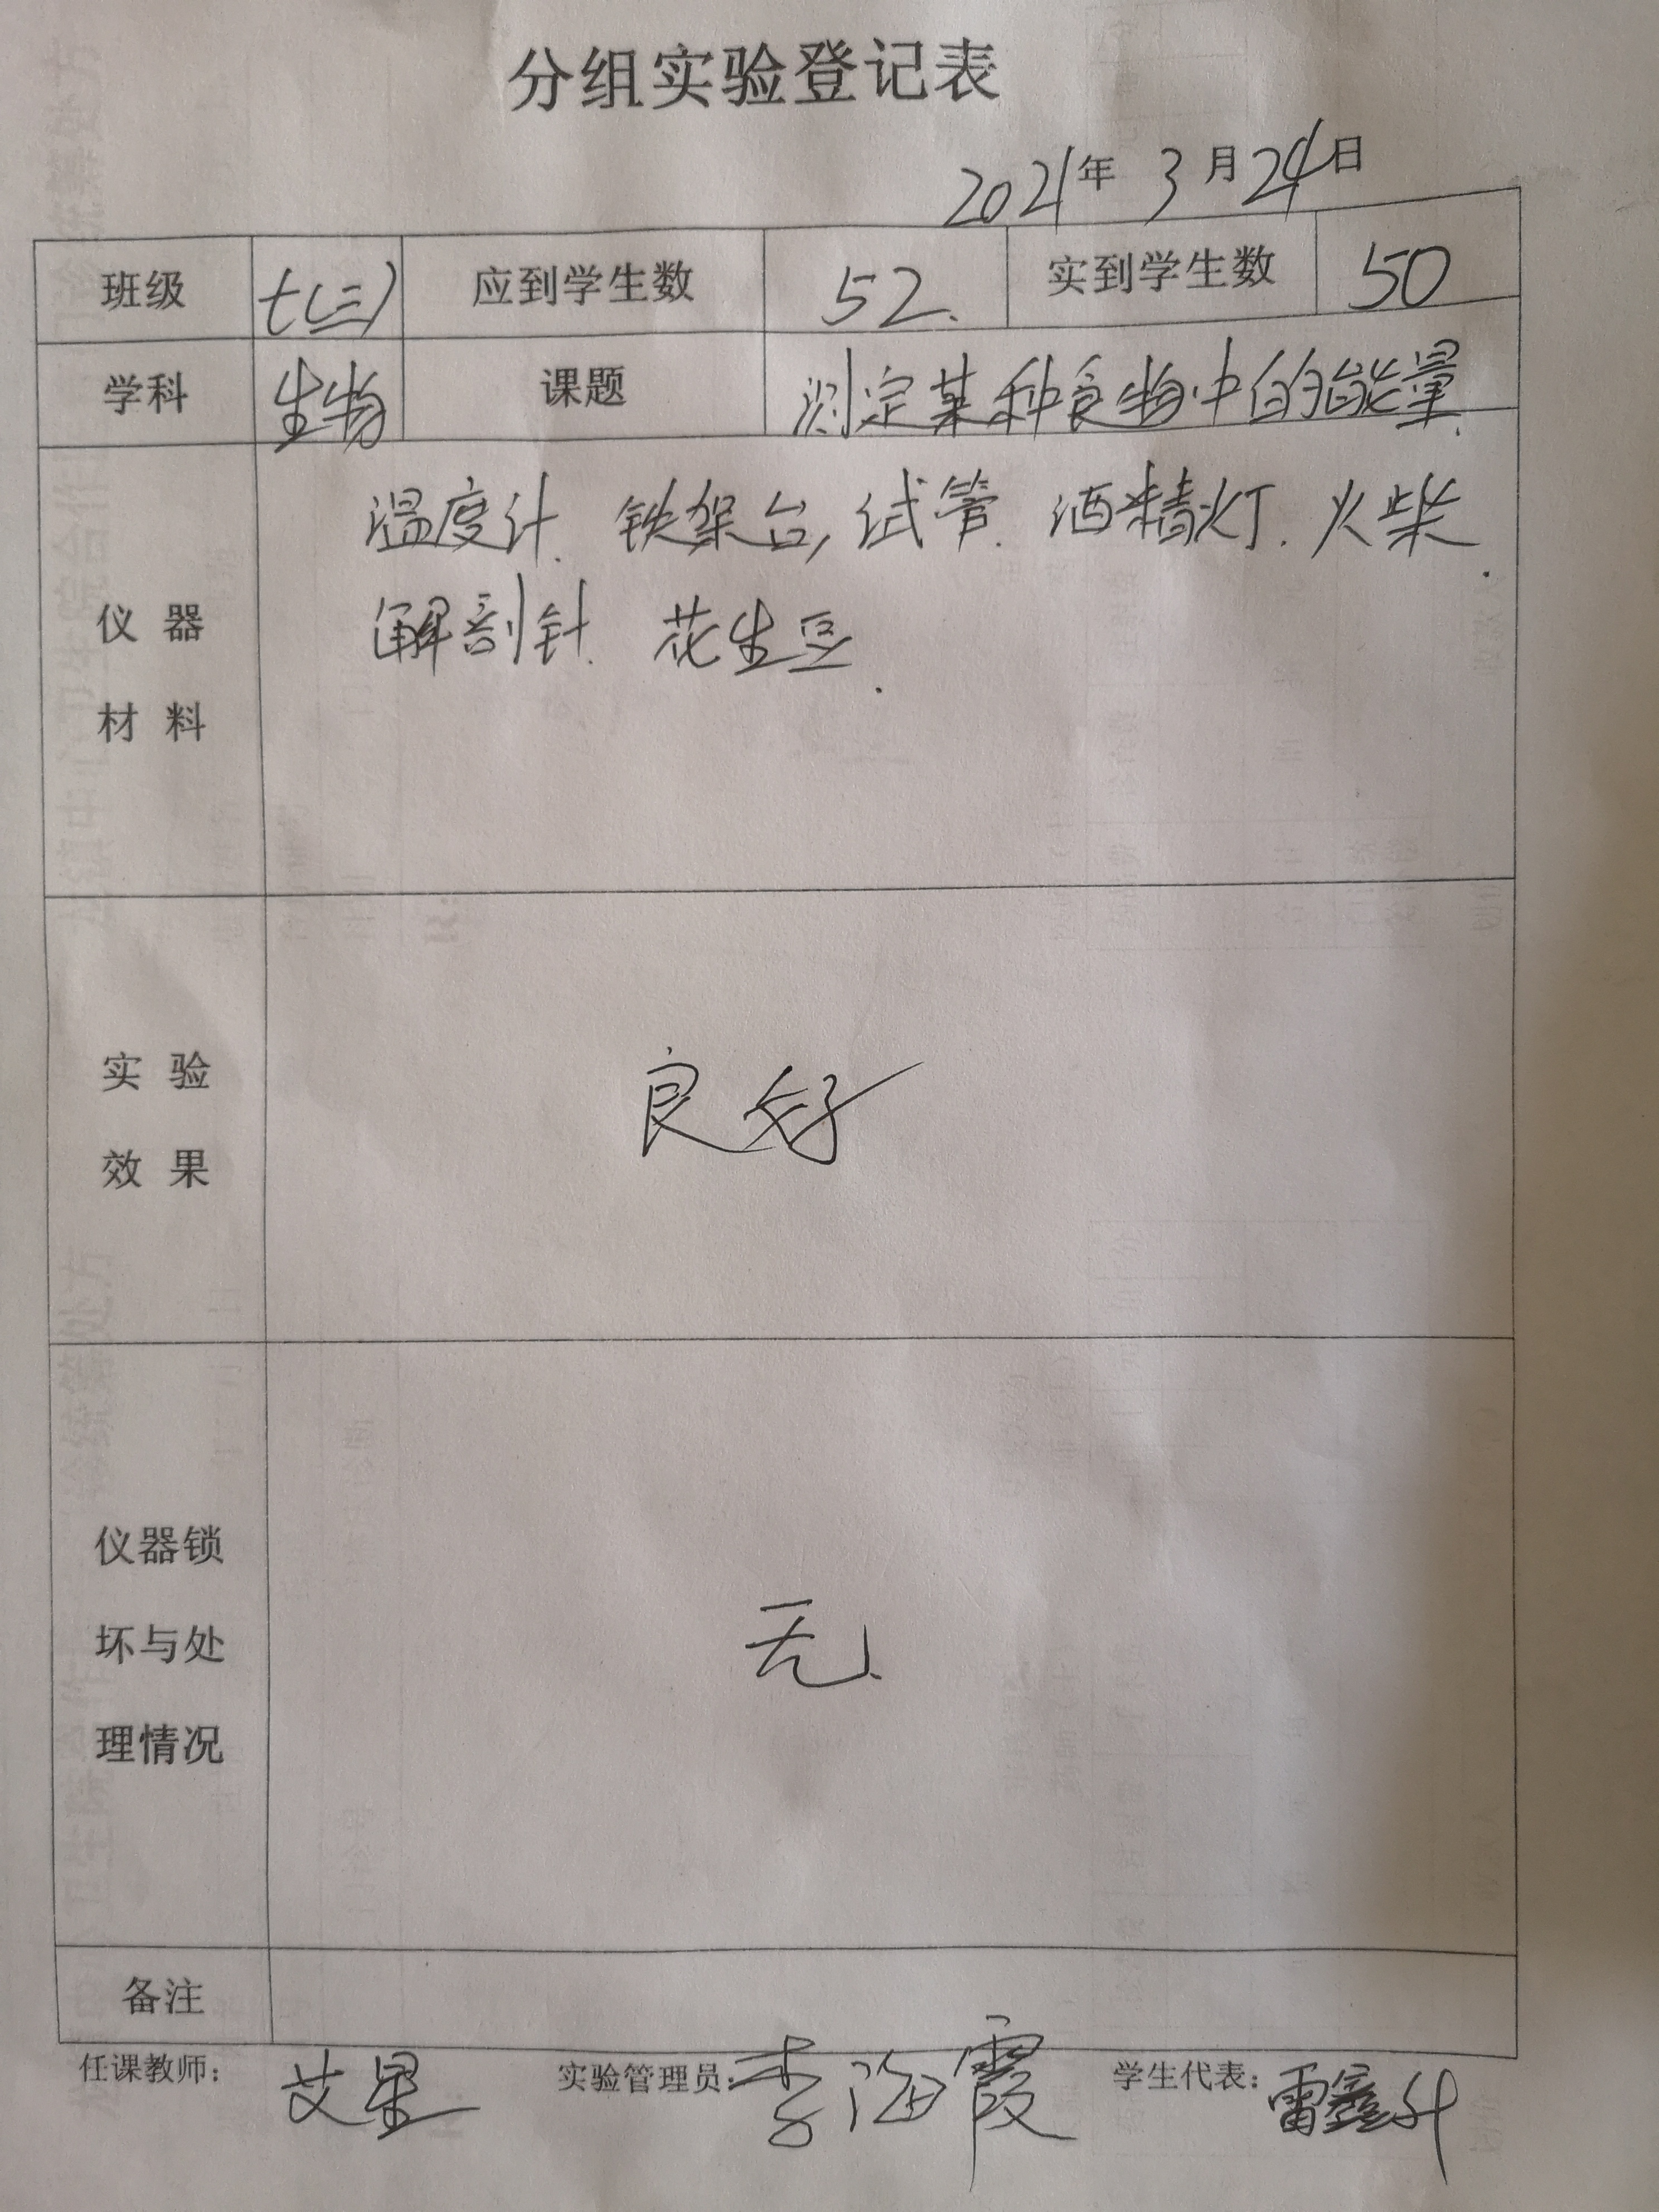 分组实验登记表
2021年 3月24日
班级 七(三) 应到学生数 52. 实到学生数 50
学科 生物 课题 测定某种食物中的能量.
仪器材料
温度计. 铁架台, 试管. 酒精灯. 火柴.
解剖针. 花生豆.
实验效果 良好
仪器锁坏与处理情况 无.
备注
任课教师: 艾星 实验管理员: 李海霞 学生代表: 雷鑫